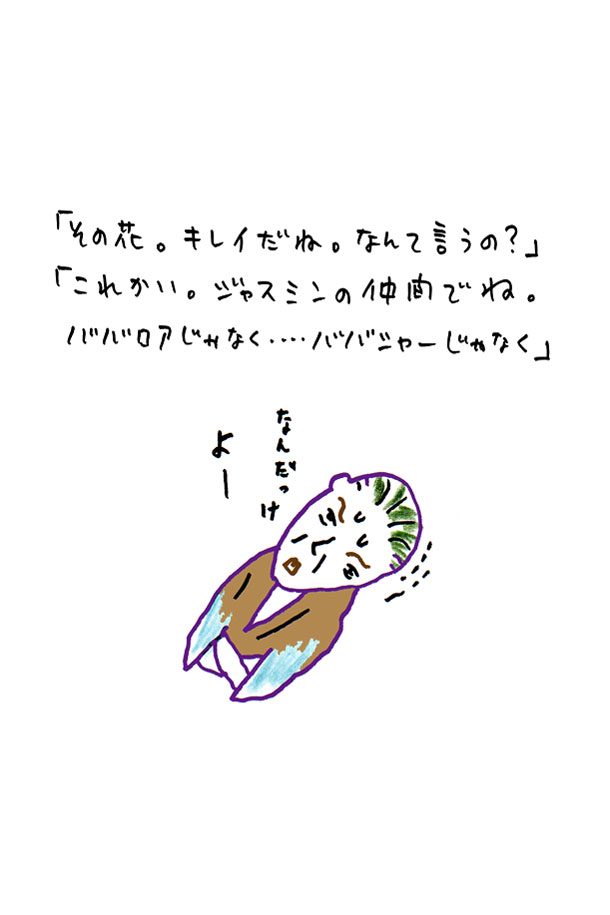 「その花。キレイだね。なんて言うの?」
「これかい。ジャスミンの仲間でね。
ババロアじゃなく‥‥ババシャーじゃなく」
なんだっけ
よー